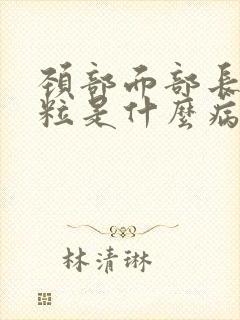 頚部而部長
粒是什麼病
林清琳